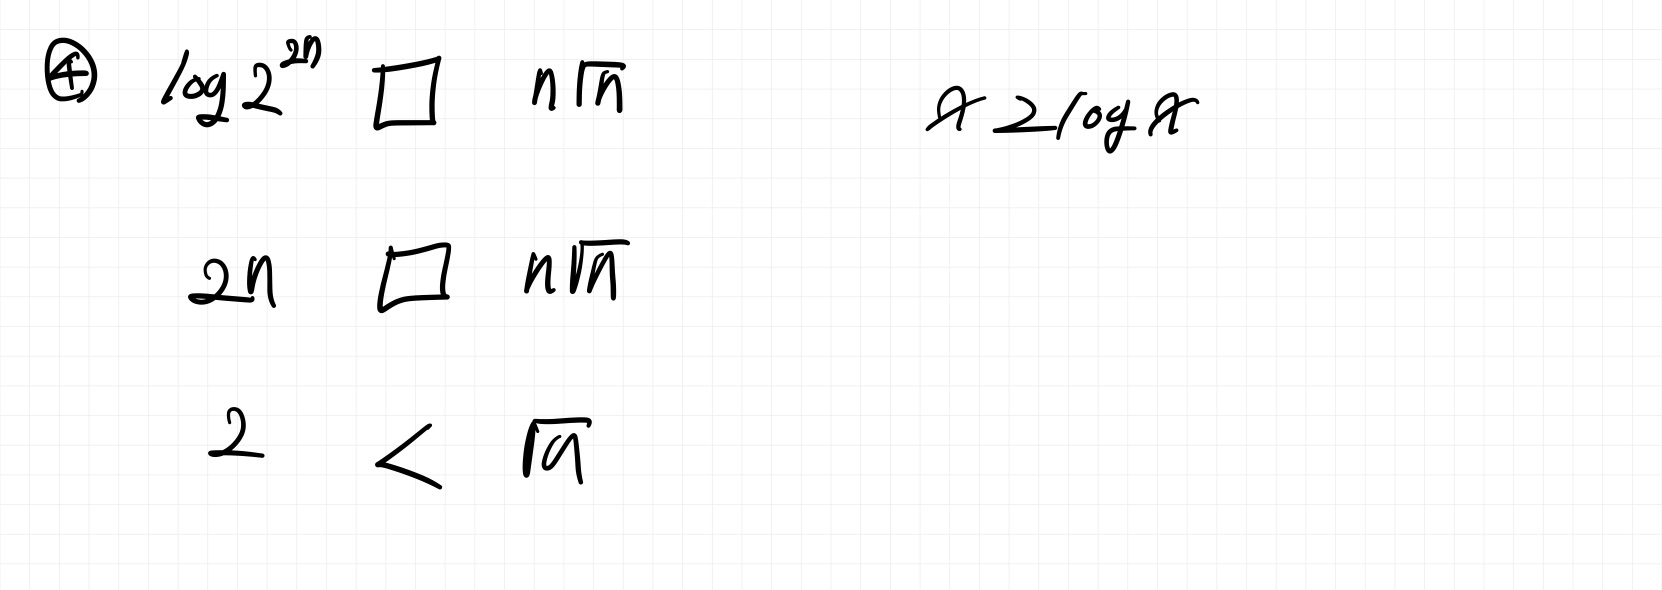 ④ log 2^{2n} □ n√n
x 2 log x
2n □ n√n
2 < √n